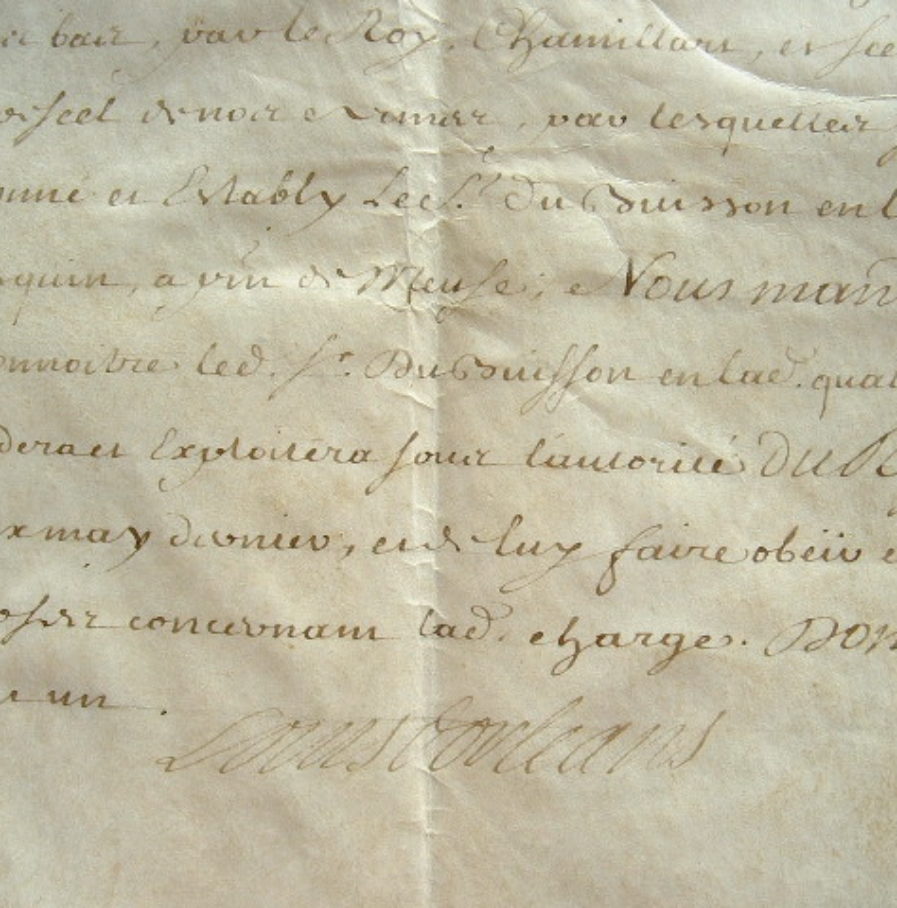 bas, par le Roy, Chamillart, et sce
scel denotre armes, par lesquelles
onné et Estably Le S.r du Buisson en l
quin, a fin de Meuse; Nous man
onnoitre led. S.r Du Buisson en lad. qual
dera et Exploitera sous l'autorité Du R
may dernier, et de luy faire obeir e
oses concernant lad. charge. Don
un.
Louis d'orleans